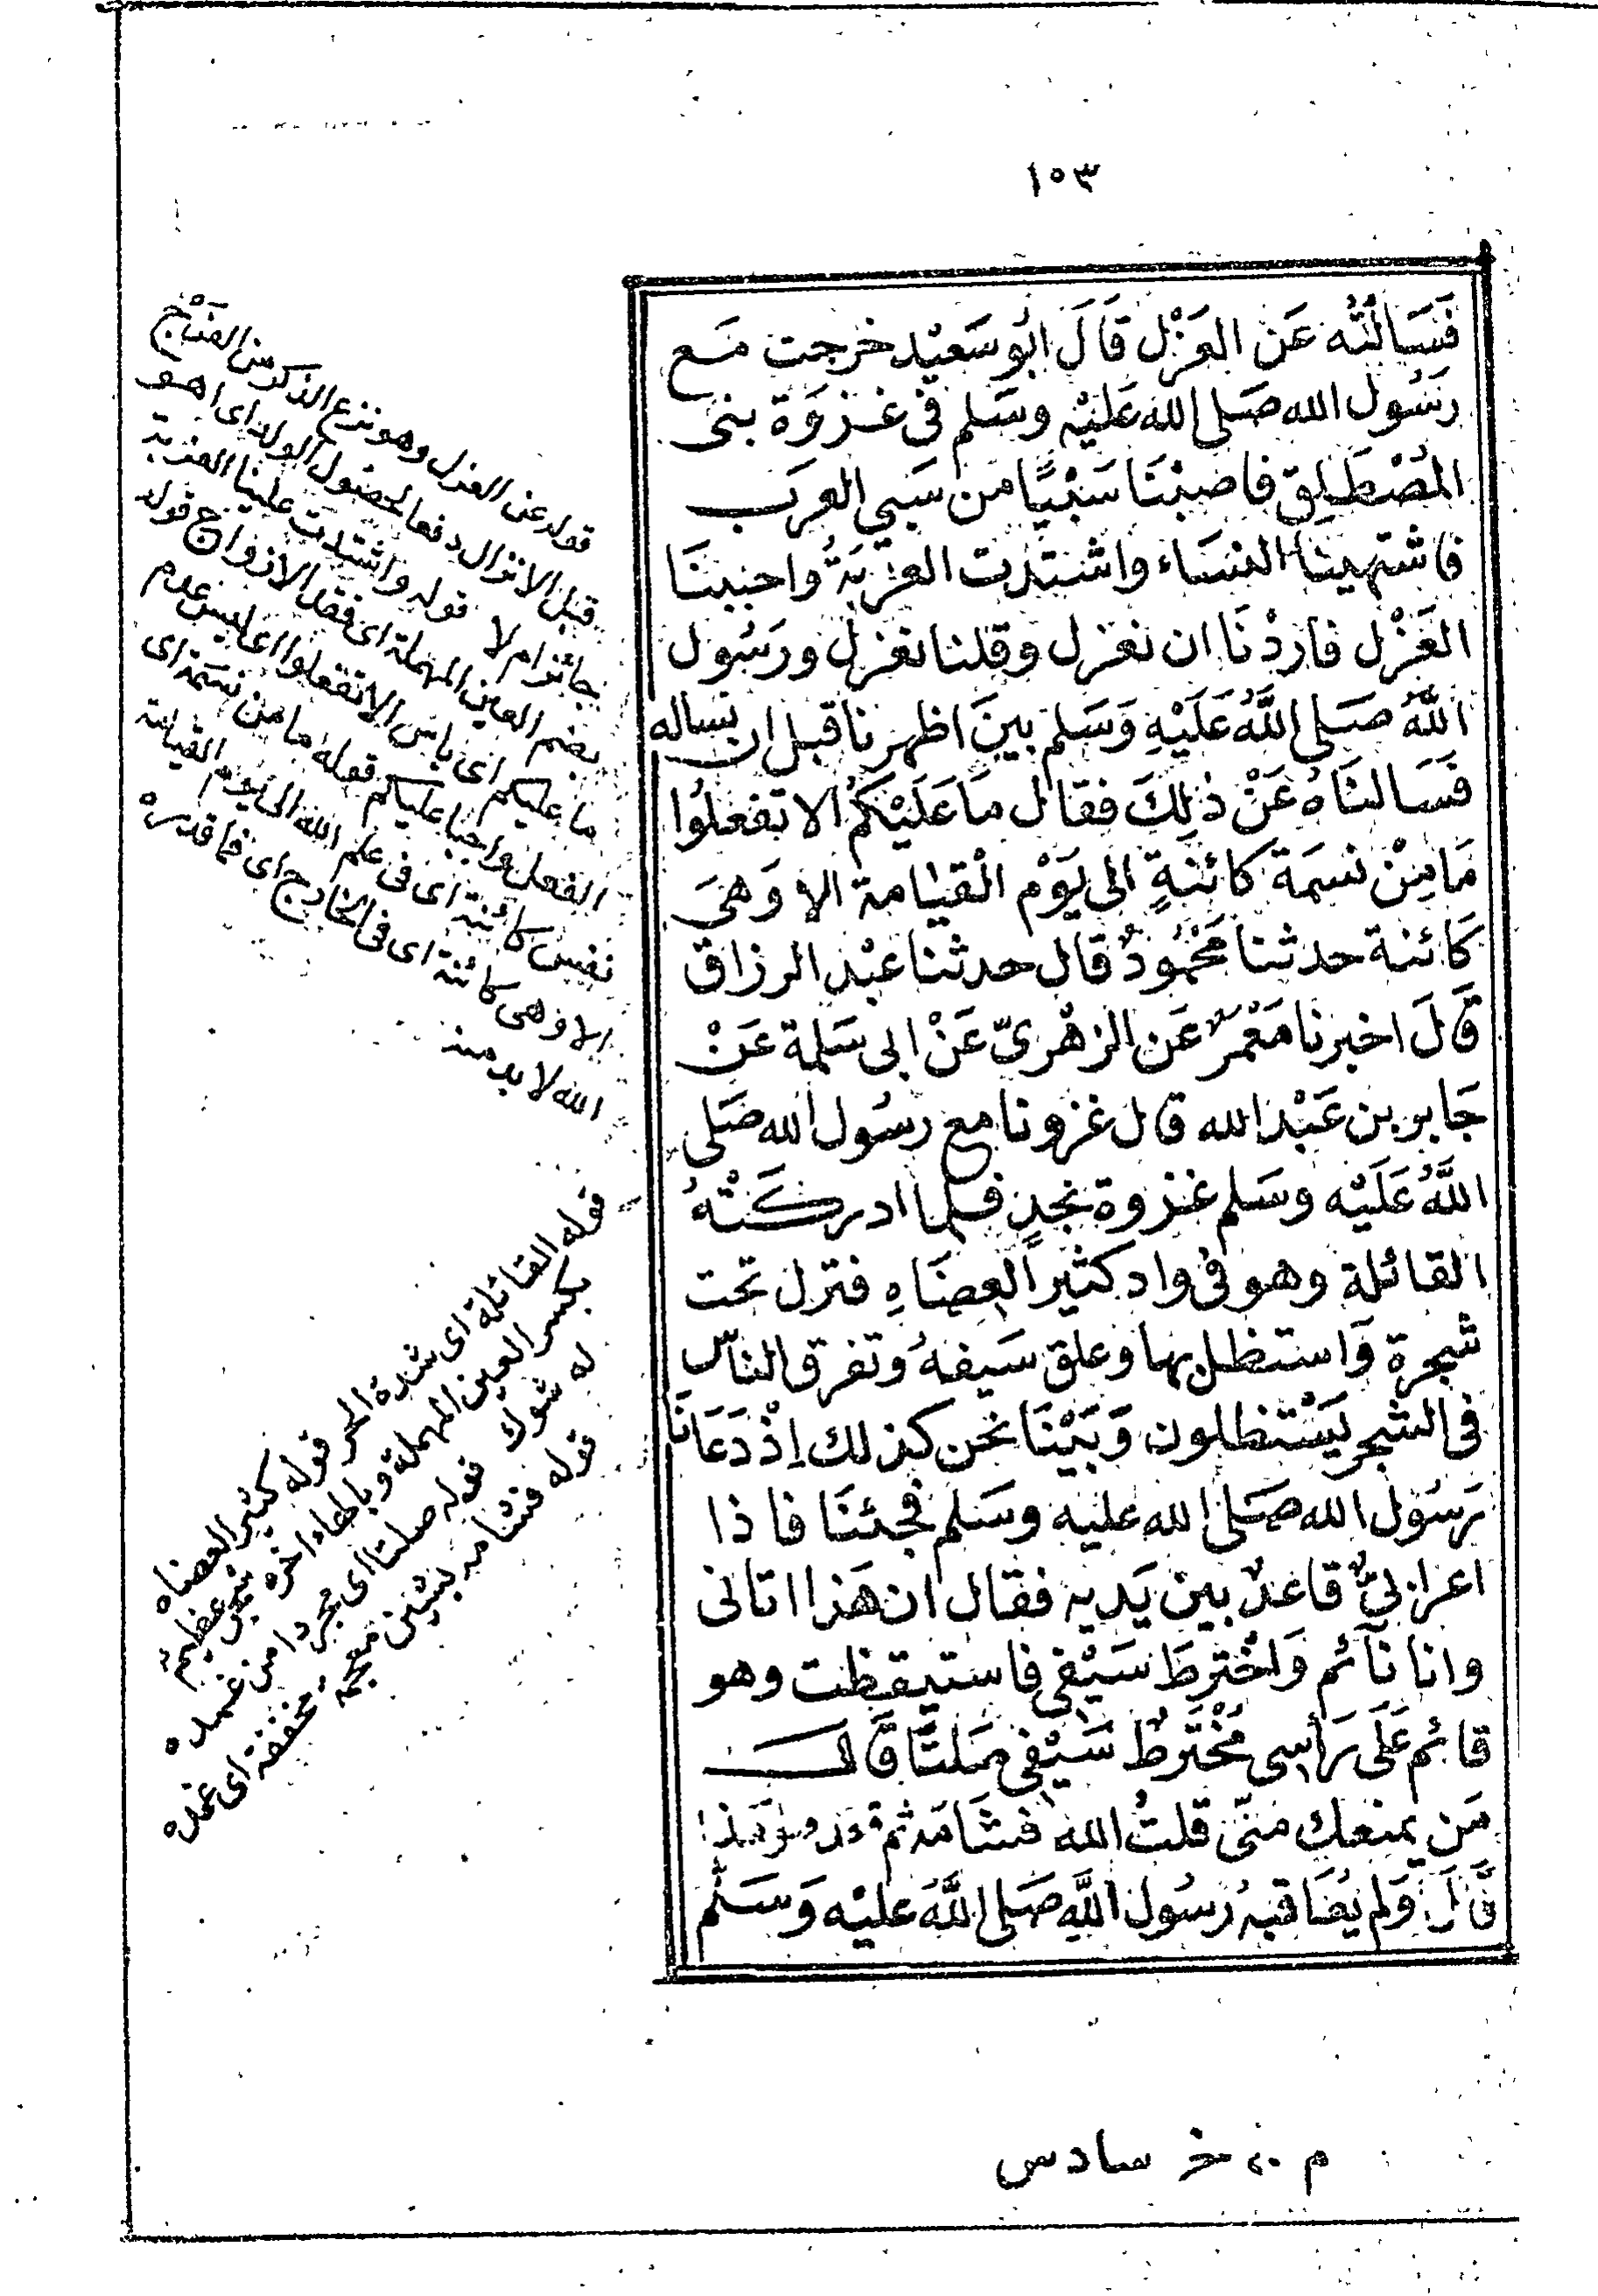 ١٥٣
فَسَالْتُه عَن العَزْل قَالَ ابُو سَعيْد خرجت مَع
رَسُول الله صَلى الله عَليْه وسَلم فى غزوَة بنى
المُصْطَلِق فاصبْنَا سَبْيًا من سَبي العرَب
فاشتهينا النسَاء واشتدت العزبَةُ واحببنَا
العَزْل فاردْنَا ان نعزل وقلنا نعزل ورَسُول
اللهُ صَلى اللَّهُ عَلَيْهِ وَسَلم بينَ اظهرنا قبل ان نساله
فَسَالنَاهُ عَنْ ذلِكَ فقال مَا عَلَيْكُمُ الا تفعلوُا
مَامِنْ نسمَة كائنَةٍ الى يَوْم الْقيامة الا وَهىَ
كَائنة حدثنا مَحْمُودُ قال حدثنا عَبْد الرزاق
قَالَ اخبرنا مَعْمر عَن الزهْرىّ عَنْ ابى سَلمة عَنْ
جَابر بن عَبْد الله قال غزونا مع رسُول الله صَلى
اللَّهُ عَلَيْه وسَلم غزوة نجدٍ فلما ادركَتْهُ
القائلة وهو فى واد كثير العِضَاهِ فنزل تحت
شجرة وَاستظل بها وعلق سَيفهُ وتفرق الناسُ
فى الشجر يَسْتظلون وَبَيْنَا نحن كذلك اِذْ دَعَانَا
رَسُول الله صَلى الله عليه وسَلم فجئنَا فاذا
اعرابىٌّ قاعدٌ بين يَديه فقال ان هَذا اتانى
وانا نَآئم وَاخْترطَ سَيْفى فاستيقظت وهو
قائم عَلَى رَأسى مُخْتَرطٌ سَيْفى صَلتًا قَال
مَن يمنعك منىّ قلتُ الله فشَامَه ثم قعد فهوَ هَذا
قَالَ وَلم يُعَاقبهُ رَسُول اللَّهِ صَلى اللَّهُ عليْه وَسَلَّم
قوله عن العزل وهو نزع الذكر من الفَرْج
قبل الانزال دفعا لحصُول الولد اى اهو
جائز ام لا قوله واشتدت علينا العزبة
بضم العين المهملة اى فقد الازواج قوله
ما عليكم اى باس الا تفعلوا اى ليس عدم
الفعل واجبا عليكم قوله ما من نسَمَة اى
نفس كائنة اى فى علم الله الى يوم القيامة
الا وهى كائنة اى فى الخارج اى فما قدره
الله لا بد منه
قوله القائلة اى شدة الحر قوله كثير العضاه
بكسر العين المهملة وبالهاء اخره شجر عظيم
له شوك قوله صلتا اى مجردا من غمده
قوله فشامه بشين معجمة مخففة اى غمده
م ٢٠ خ سادس